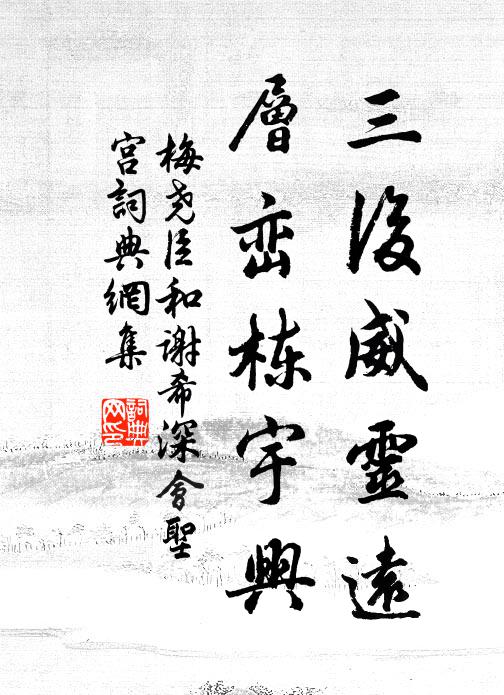 三後威靈遠
層峦栋宇興
梅尧臣和谢希深會聖
宫詞典網集
詞典網印